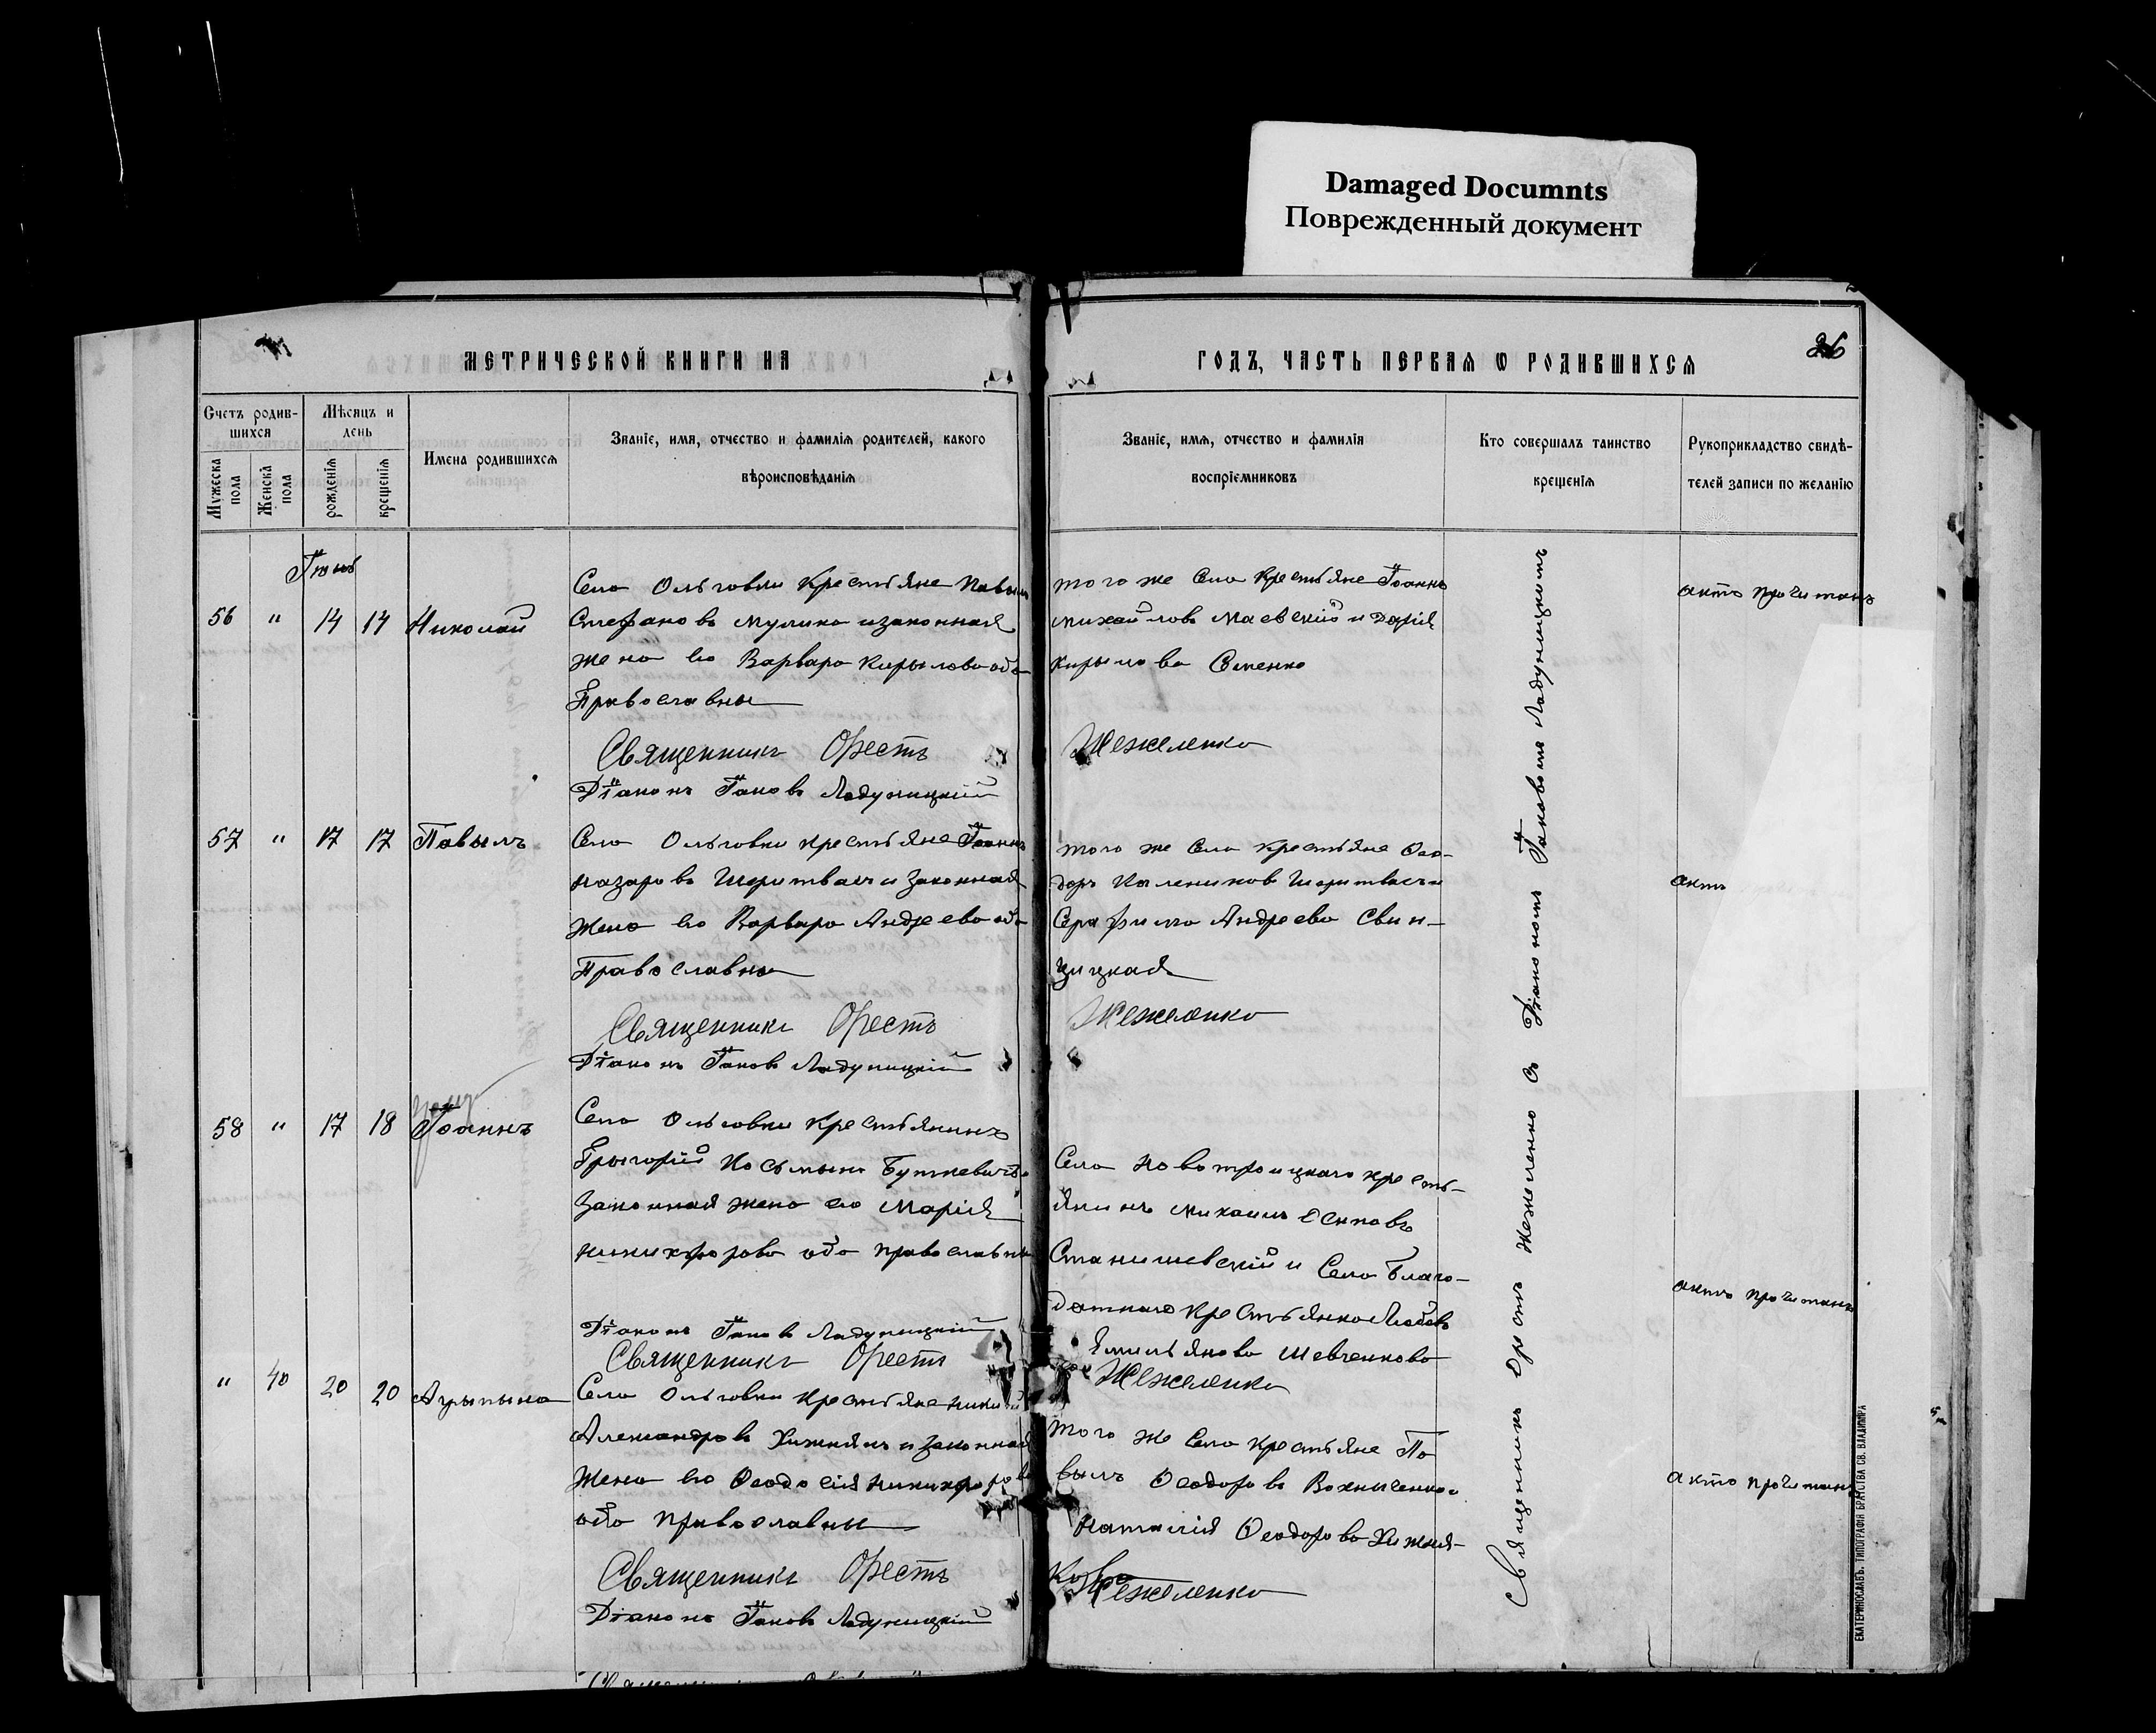 Damaged Documnts
Поврежденный документ
МЕТРИЧЕСКОЙ КНИГИ НА
ГОДЪ, ЧАСТЬ ПЕРВАѦ Ѡ РОДИВШИХСѦ
Счетъ родив-
шихся
Мѣсяцъ и
день
Мужеска
пола
Женска
пола
рожденіѧ
крещеніѧ
Имена родившихсѧ
Званіе, имя, отчество и фамиліѧ родителей, какого
вѣроисповѣданіѧ
Званіе, имѧ, отчество и фамилія
воспріемниковъ
Кто совершалъ таинство
крещеніѧ
Рукоприкладство свидѣ-
телей записи по желанію
Іюнь
56 " 14 14 Николай
Села Ольговки крестьяне Павелъ
Стефановъ Мулика и законная
жена его Варвара Кирылова оба
Православны
Священникъ Орестъ
Діаконъ Іаковъ Ладуницкій
того же Села крестьяне Іоаннъ
Михайловъ Маевскій и Дарія
Кирылова
Жежеленко
актъ прочитанъ
57 " 17 17 Павылъ
Села Ольговки крестьяне Іоаннъ
Назаровъ и законная
жена его Варвара Андреева оба
Православны
Священникъ Орестъ
Діаконъ Іаковъ Ладуницкій
того же Села крестьяне Ѳео-
доръ
Серафима Андреева Свин-
цицкая
Жежеленко
актъ
58 " 17 18 Іоаннъ
Села Ольговки крестьянинъ
Грыгорій Косьминъ Буткевичъ и
Законная жена его Марія
Никихфорова оба православны
Діаконъ Іаковъ Ладуницкій
Священникъ Орестъ
Села Новотроицкаго кресть-
янинъ Михаилъ Осиповъ
Станишевскій и Села Благо-
датнаго крестьянка Любовь
Ямильянова Шевченкова
Жежеленко
актъ прочитанъ
" 40 20 20 Агрыпына
Села Ольговки крестьяне
Александровъ Хижнякъ и законная
жена его Ѳеодосія Никихфорова
оба православны
Священникъ Орестъ
Діаконъ Іаковъ Ладуницкій
того же Села крестьяне Па
вылъ Ѳеодоровъ
Наталія Ѳеодорова Хижня-
кова
Жежеленко
актъ прочитанъ
Священникъ Орестъ Жежеленко съ Діакономъ Іаковомъ Ладуницкимъ
ЕКАТЕРИНОСЛАВЪ. ТИПОГРАФІЯ БРАТСТВА СВ. ВЛАДИМІРА